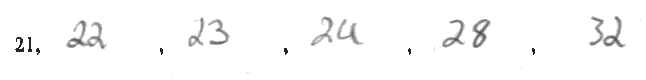 21, 22, 23, 24, 28, 32